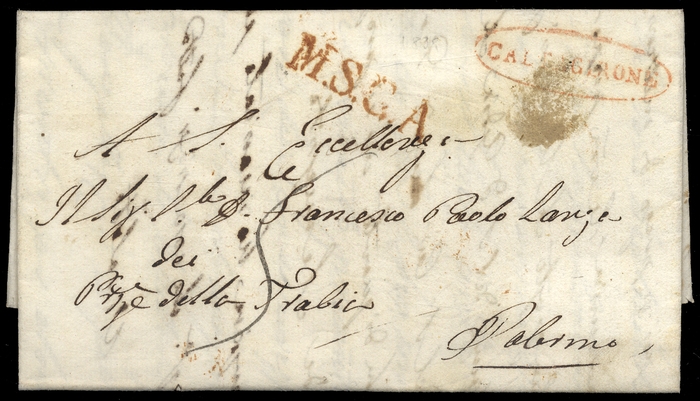 M.S.C.A
CALTAGIRONE
A S. Eccellenza
Il Sig.r D. Francesco Paolo Lanza
dei
Pr.pe della Trabia
Palermo,